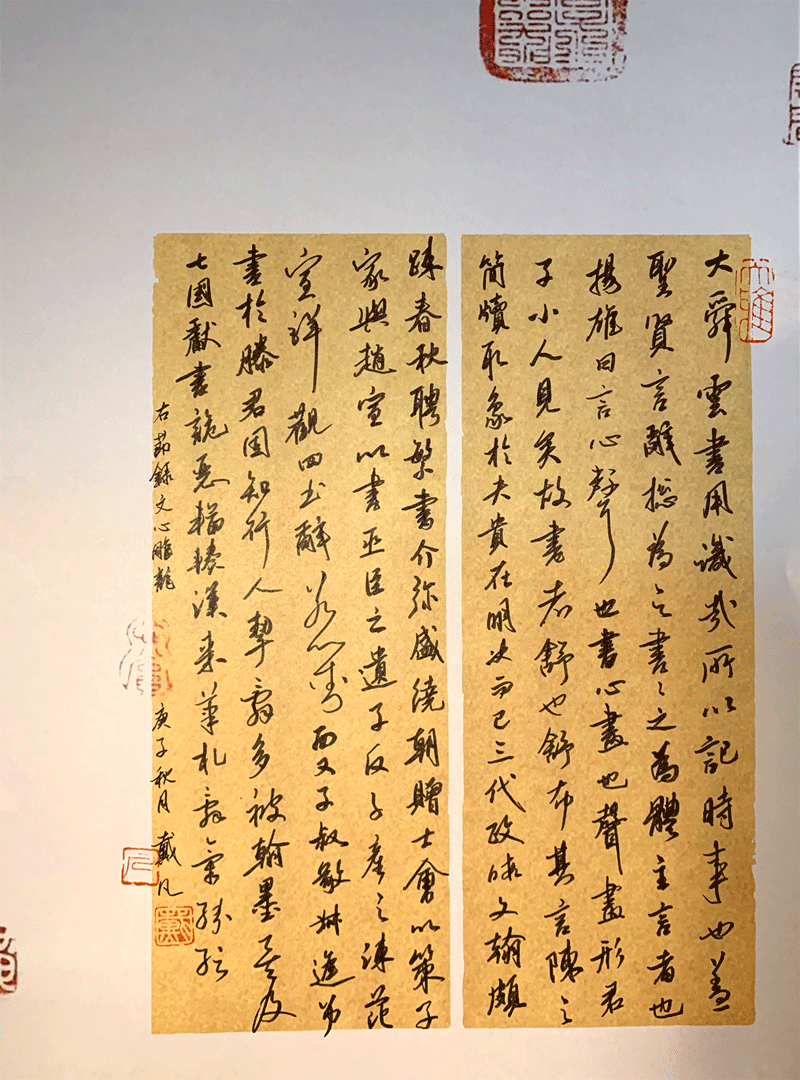 大舜雲書用識哉所以記時事也蓋
聖賢言辭摠為之書〻之為體主言者也
揚雄曰言心聲也書心畫也聲畫形君
子小人見矣故書者舒也舒布其言陳之
簡牘取象於夬貴在明決而已三代政暇文翰頗
疎春秋聘繁書介彌盛繞朝贈士會以策子
家與趙宣以書巫臣之遺子反子產之諫范
宣詳觀四書辭若對面又子叔敬叔進弔
書於滕君固知行人挈辭多被翰墨矣及
七國獻書詭麗輻輳漢來筆札辭氣紛紜
右節錄文心雕龍 庚子秋月 戴凡